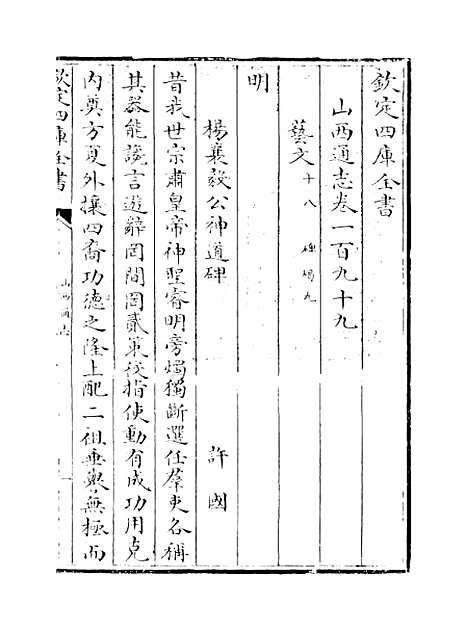 欽定四庫全書
山西通志卷一百九十九
藝文十八 碑碣九
明
楊襄毅公神道碑 許國
昔我世宗肅皇帝神聖睿明旁燭獨斷選任羣吏各稱
其器能讒言遊辭罔間罔貳策役指使動有成功用克
內奠方夏外攘四裔功德之隆上配二祖垂樂無極而
欽定四庫全書
山西通志
一